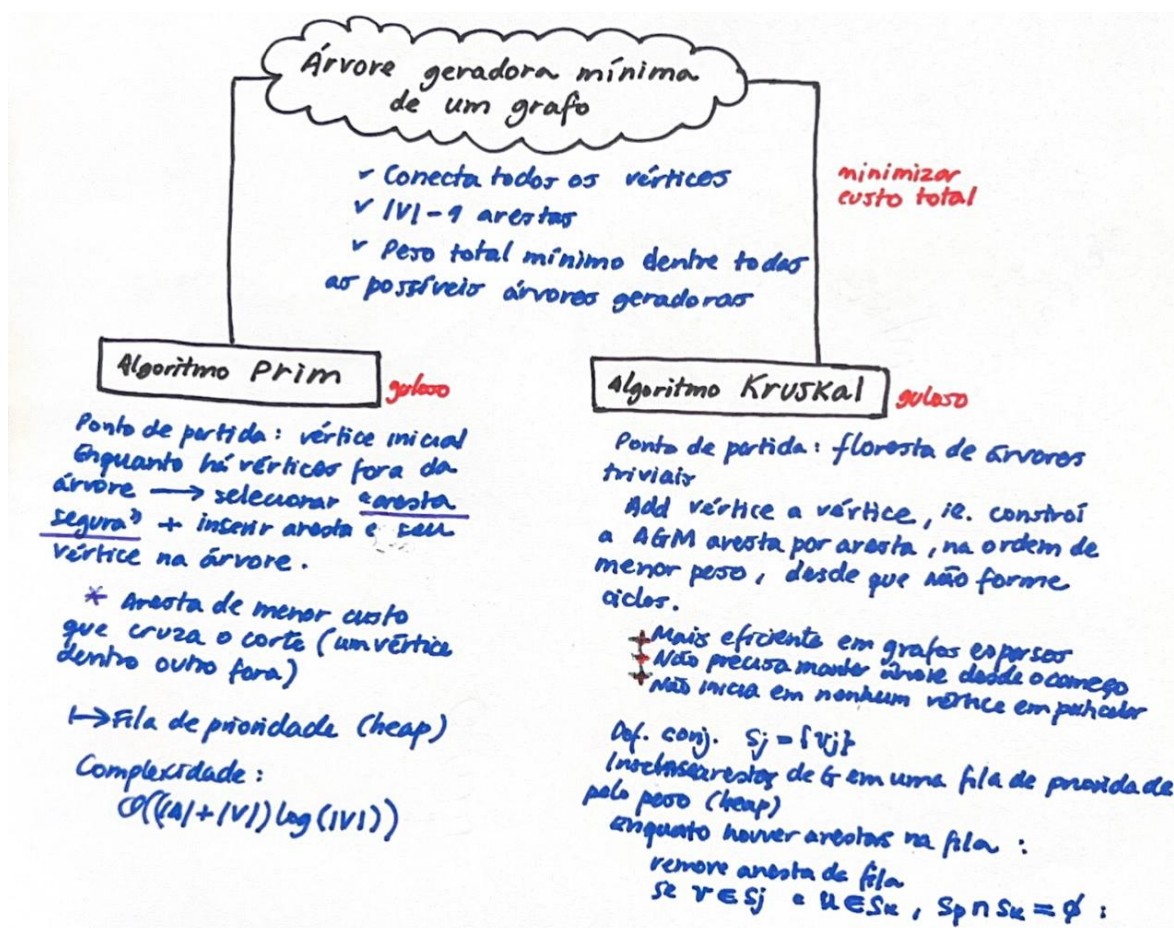 Árvore geradora mínima
de um grafo
✓ Conecta todos os vértices
✓ |V|-1 arestas
✓ Peso total mínimo dentre todas
as possíveis árvores geradoras
minimizar
custo total
Algoritmo Prim
guloso
Ponto de partida: vértice inicial
Enquanto há vértices fora da
árvore → selecionar "aresta
segura" + inserir aresta e seu
vértice na árvore.
* Aresta de menor custo
que cruza o corte (um vértice
dentro outro fora)
↦ Fila de prioridade (heap)
Complexidade:
O((|A|+|V|) log(|V|))
Algoritmo Kruskal
guloso
Ponto de partida: floresta de árvores
triviais
Add vértice a vértice, ie. constroí
a AGM aresta por aresta, na ordem de
menor peso, desde que não forme
ciclos.
+ Mais eficiente em grafos esparsos
+ Não precisa manter árvore desde o começo
+ Não inicia em nenhum vértice em particular
Def. conj. Sj = {vj}
arestas de G em uma fila de prioridade
pelo peso (heap)
Enquanto houver arestas na fila:
remove aresta da fila
se v ∈ Sj e u ∈ Sk, Sp ∩ Sk = ∅ :